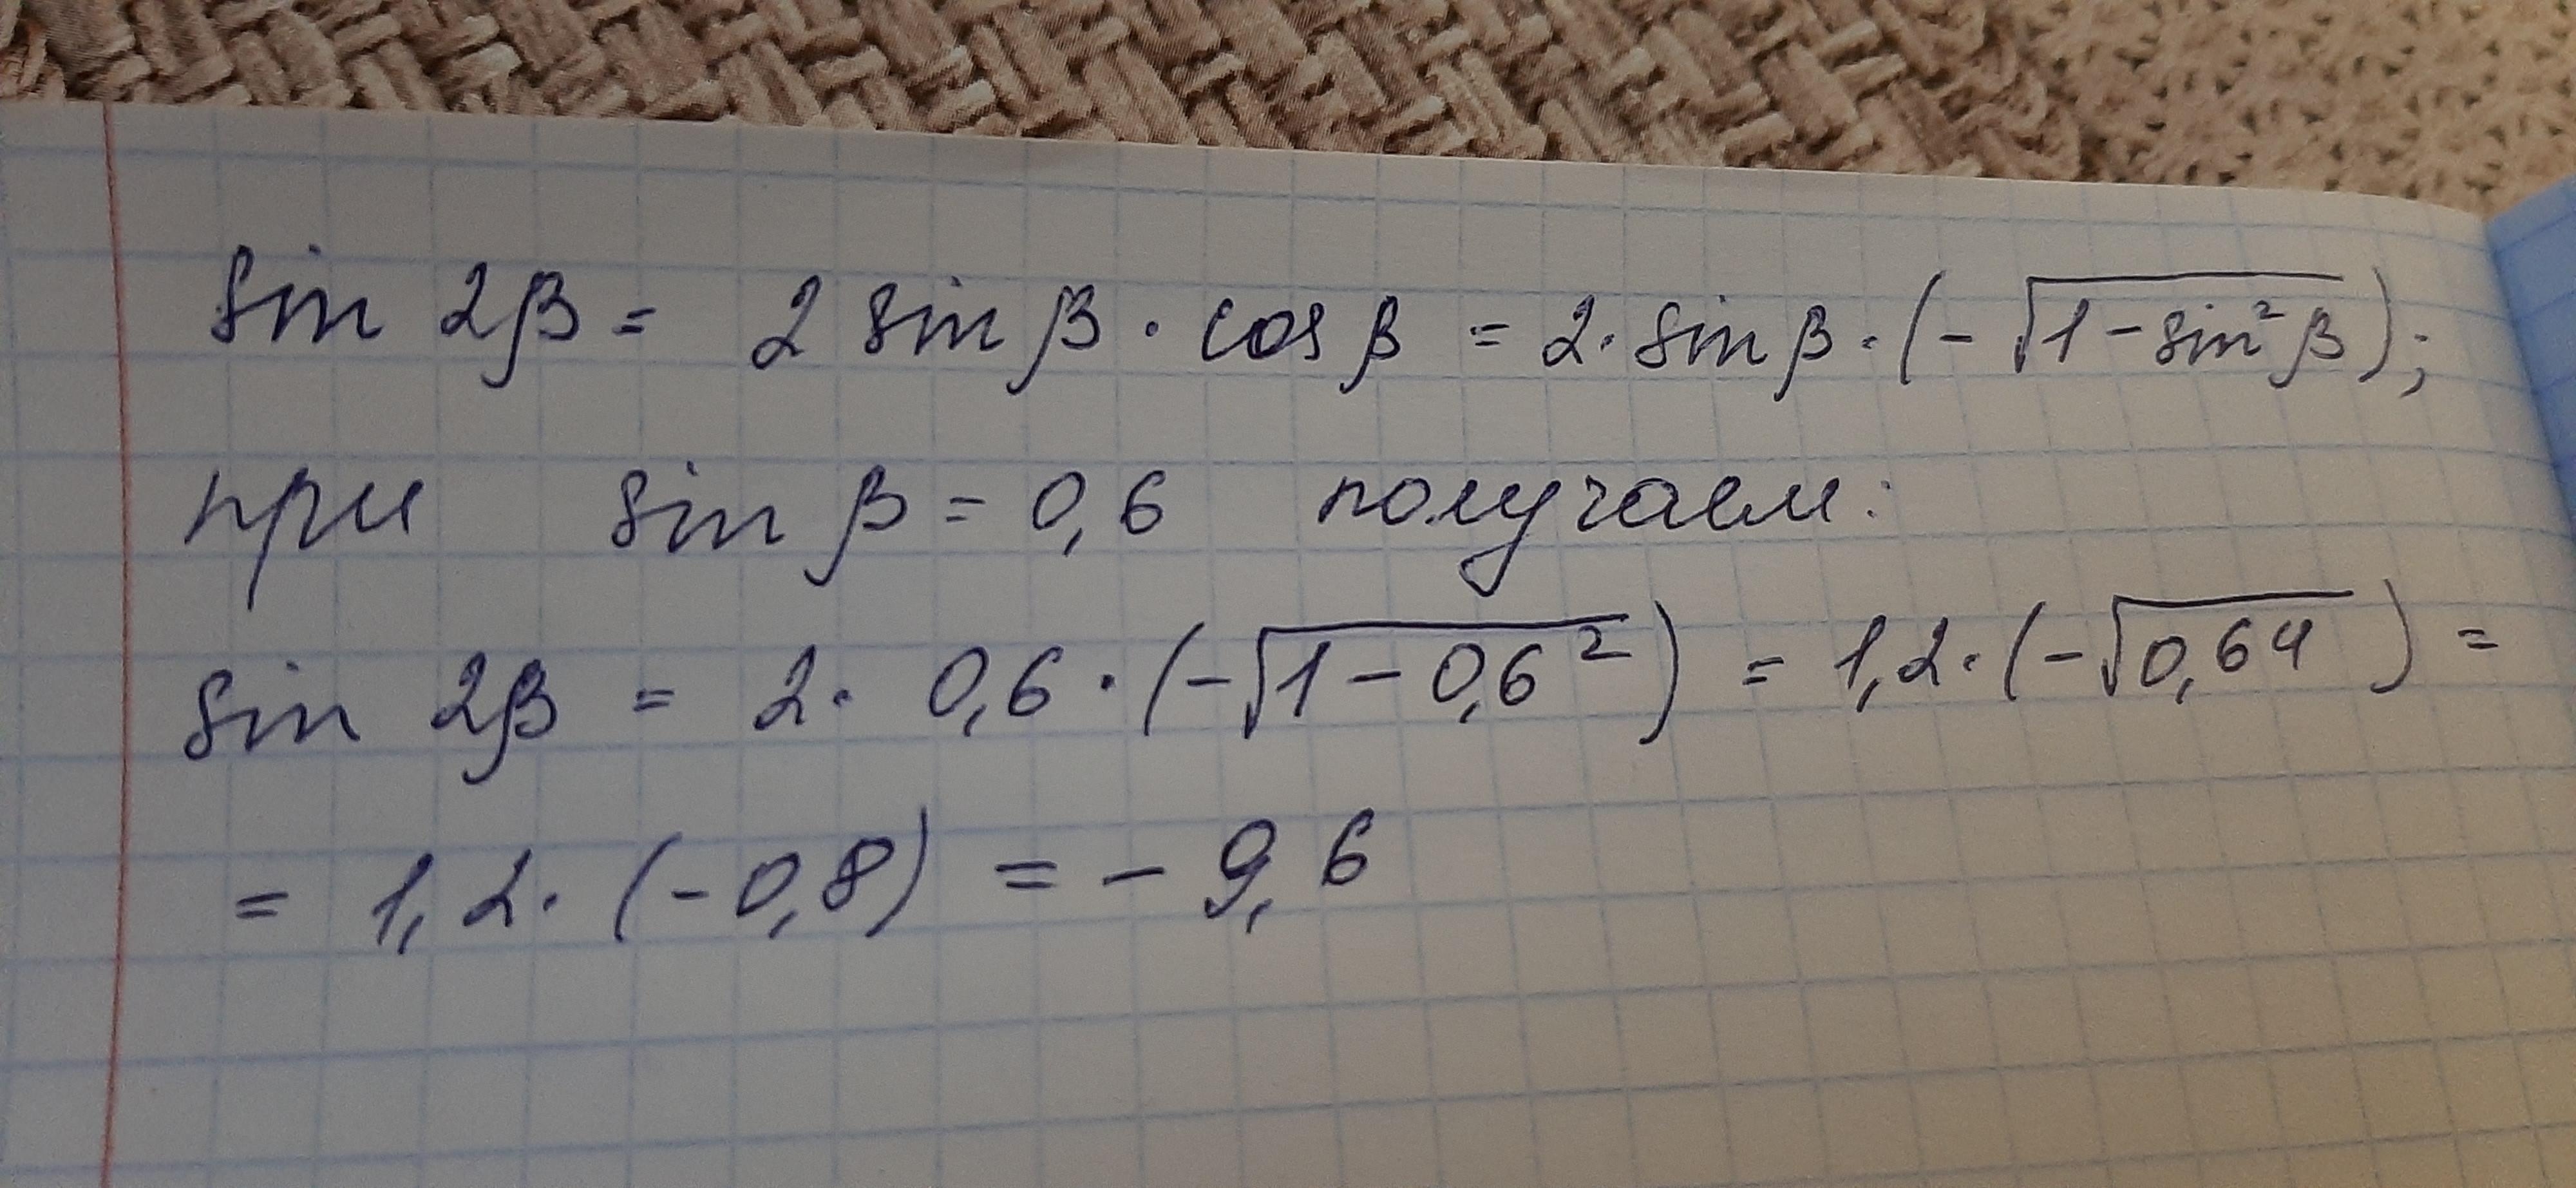 sin 2β = 2 sin β · cos β = 2 · sin β · (-√(1 - sin² β));
при sin β = 0,6 получаем:
sin 2β = 2 · 0,6 · (-√(1 - 0,6²)) = 1,2 · (-√0,64) =
= 1,2 · (-0,8) = - 9,6